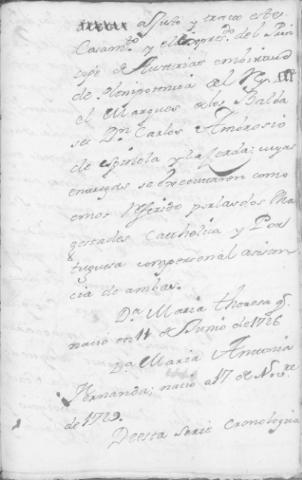 ajusto y trato este
Casamto. y el del Prin
cipe de Asturias en virtud
de Plenipotencia del Rey
el Marques de los Balba
ses Dn. Carlos Ambrosio
de Spinola y la Cerda: cuyas
entregas se executaron como
emos referido por las dos Ma
gestades Catholica y Por
tuguesa con personal asisten
cia de ambas.
Da. Maria Theresa q.
nacio en 11 de Junio de 1726
Da. Maria Antonia
Fernanda; nacio a 17 de Nove.
de 1729.
De esta serie Cronologica